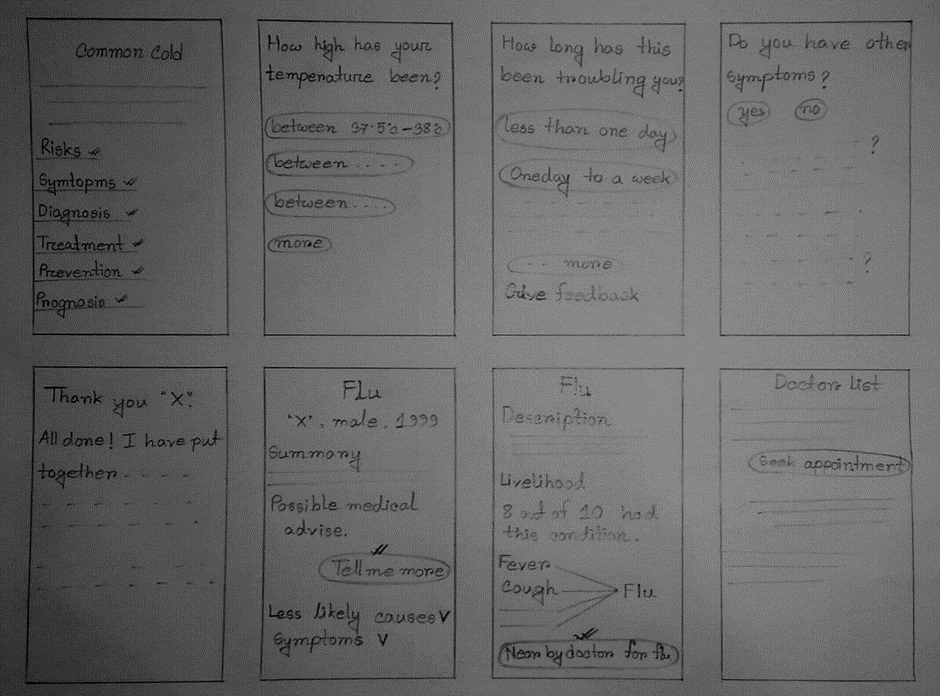 Common Cold
Risks
Symtopms
Diagnosis
Treatment
Prevention
Prognosis
How high has your
temperature been?
between 37.5°c-38°c
between ....
between ....
more
How long has this
been troubling you?
less than one day
One day to a week
... more
Give feedback
Do you have other
symptoms?
yes no
?
?
Thank you "X".
All done! I have put
together
Flu
"X", male, 1999
Summary
Possible medical
advise.
Tell me more
Less likely causes V
Symptoms V
Flu
Description
Livelihood
8 out of 10 had
this condition.
Fever
Cough
Flu
Near by doctor for flu
Doctor List
Seek appointment